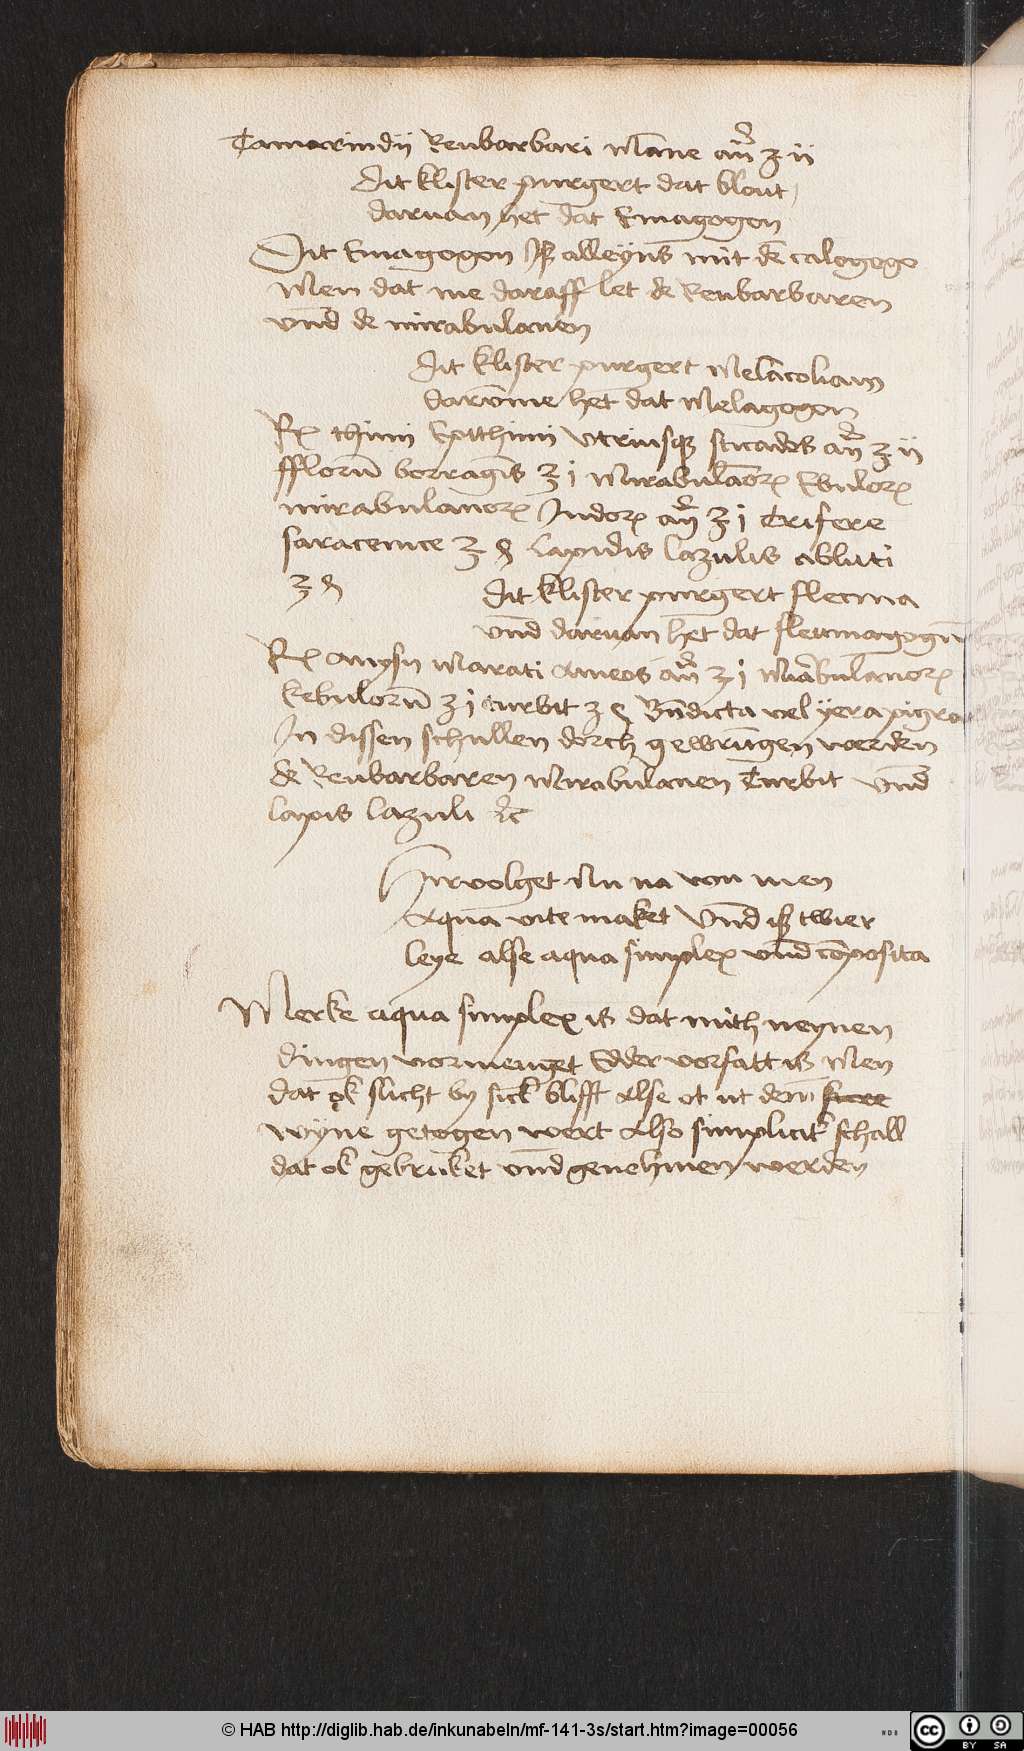 Tamarindij Reubarbari Māne an̄ ʒ ij
Dit klister purgert dat blout
daruan het dat Emagogon
Dit Emagogon Is alleyns mit de calogogo
Men dat me daraff let de Reubarbaren
vnd̄ de mirabulanen
dit klister purgert Melācoliam
darūme het dat Melagogon
Rx thimi Epithimi vtriusqȝ sticados an̄ ʒ ij
fflorū borragīs ʒ j Mirabulāorꝝ Ebulorꝝ
mirabulanorꝝ Indorꝝ an̄ ʒ j Trifere
saracenice ʒ ß Lapidis lazulis abluti
ʒ ß
dit klister purgert flecma
vnd̄ daruan het dat flecmagogū
Rx Anysy Marati Ameos an̄ ʒ j Mirabulanorꝝ
kebulorū ʒ j turbit ʒ ß Bn̄dicta vel yera pigra
In dissen schullen dorch gewrūgen werden
de Reubarbaren Mirabulanen Turbit vnd̄
lapis lazuli ⁊c
Hirvolget Nu na von men
Aqua vite maket Vnd̄ is twier
leye alse aqua simplex vnd̄ cōposita
Merke aqua simplex is dat mith neynen
dingen vormenget Edder vorsatt is Men
dat ok slicht by sick blifft Alse ot ut dem
wyne getogen wert Also simplicitʳ schall
dat ok gebruket vnd̄ genehmen werden
© HAB http://diglib.hab.de/inkunabeln/mf-141-3s/start.htm?image=00056
cc BY SA